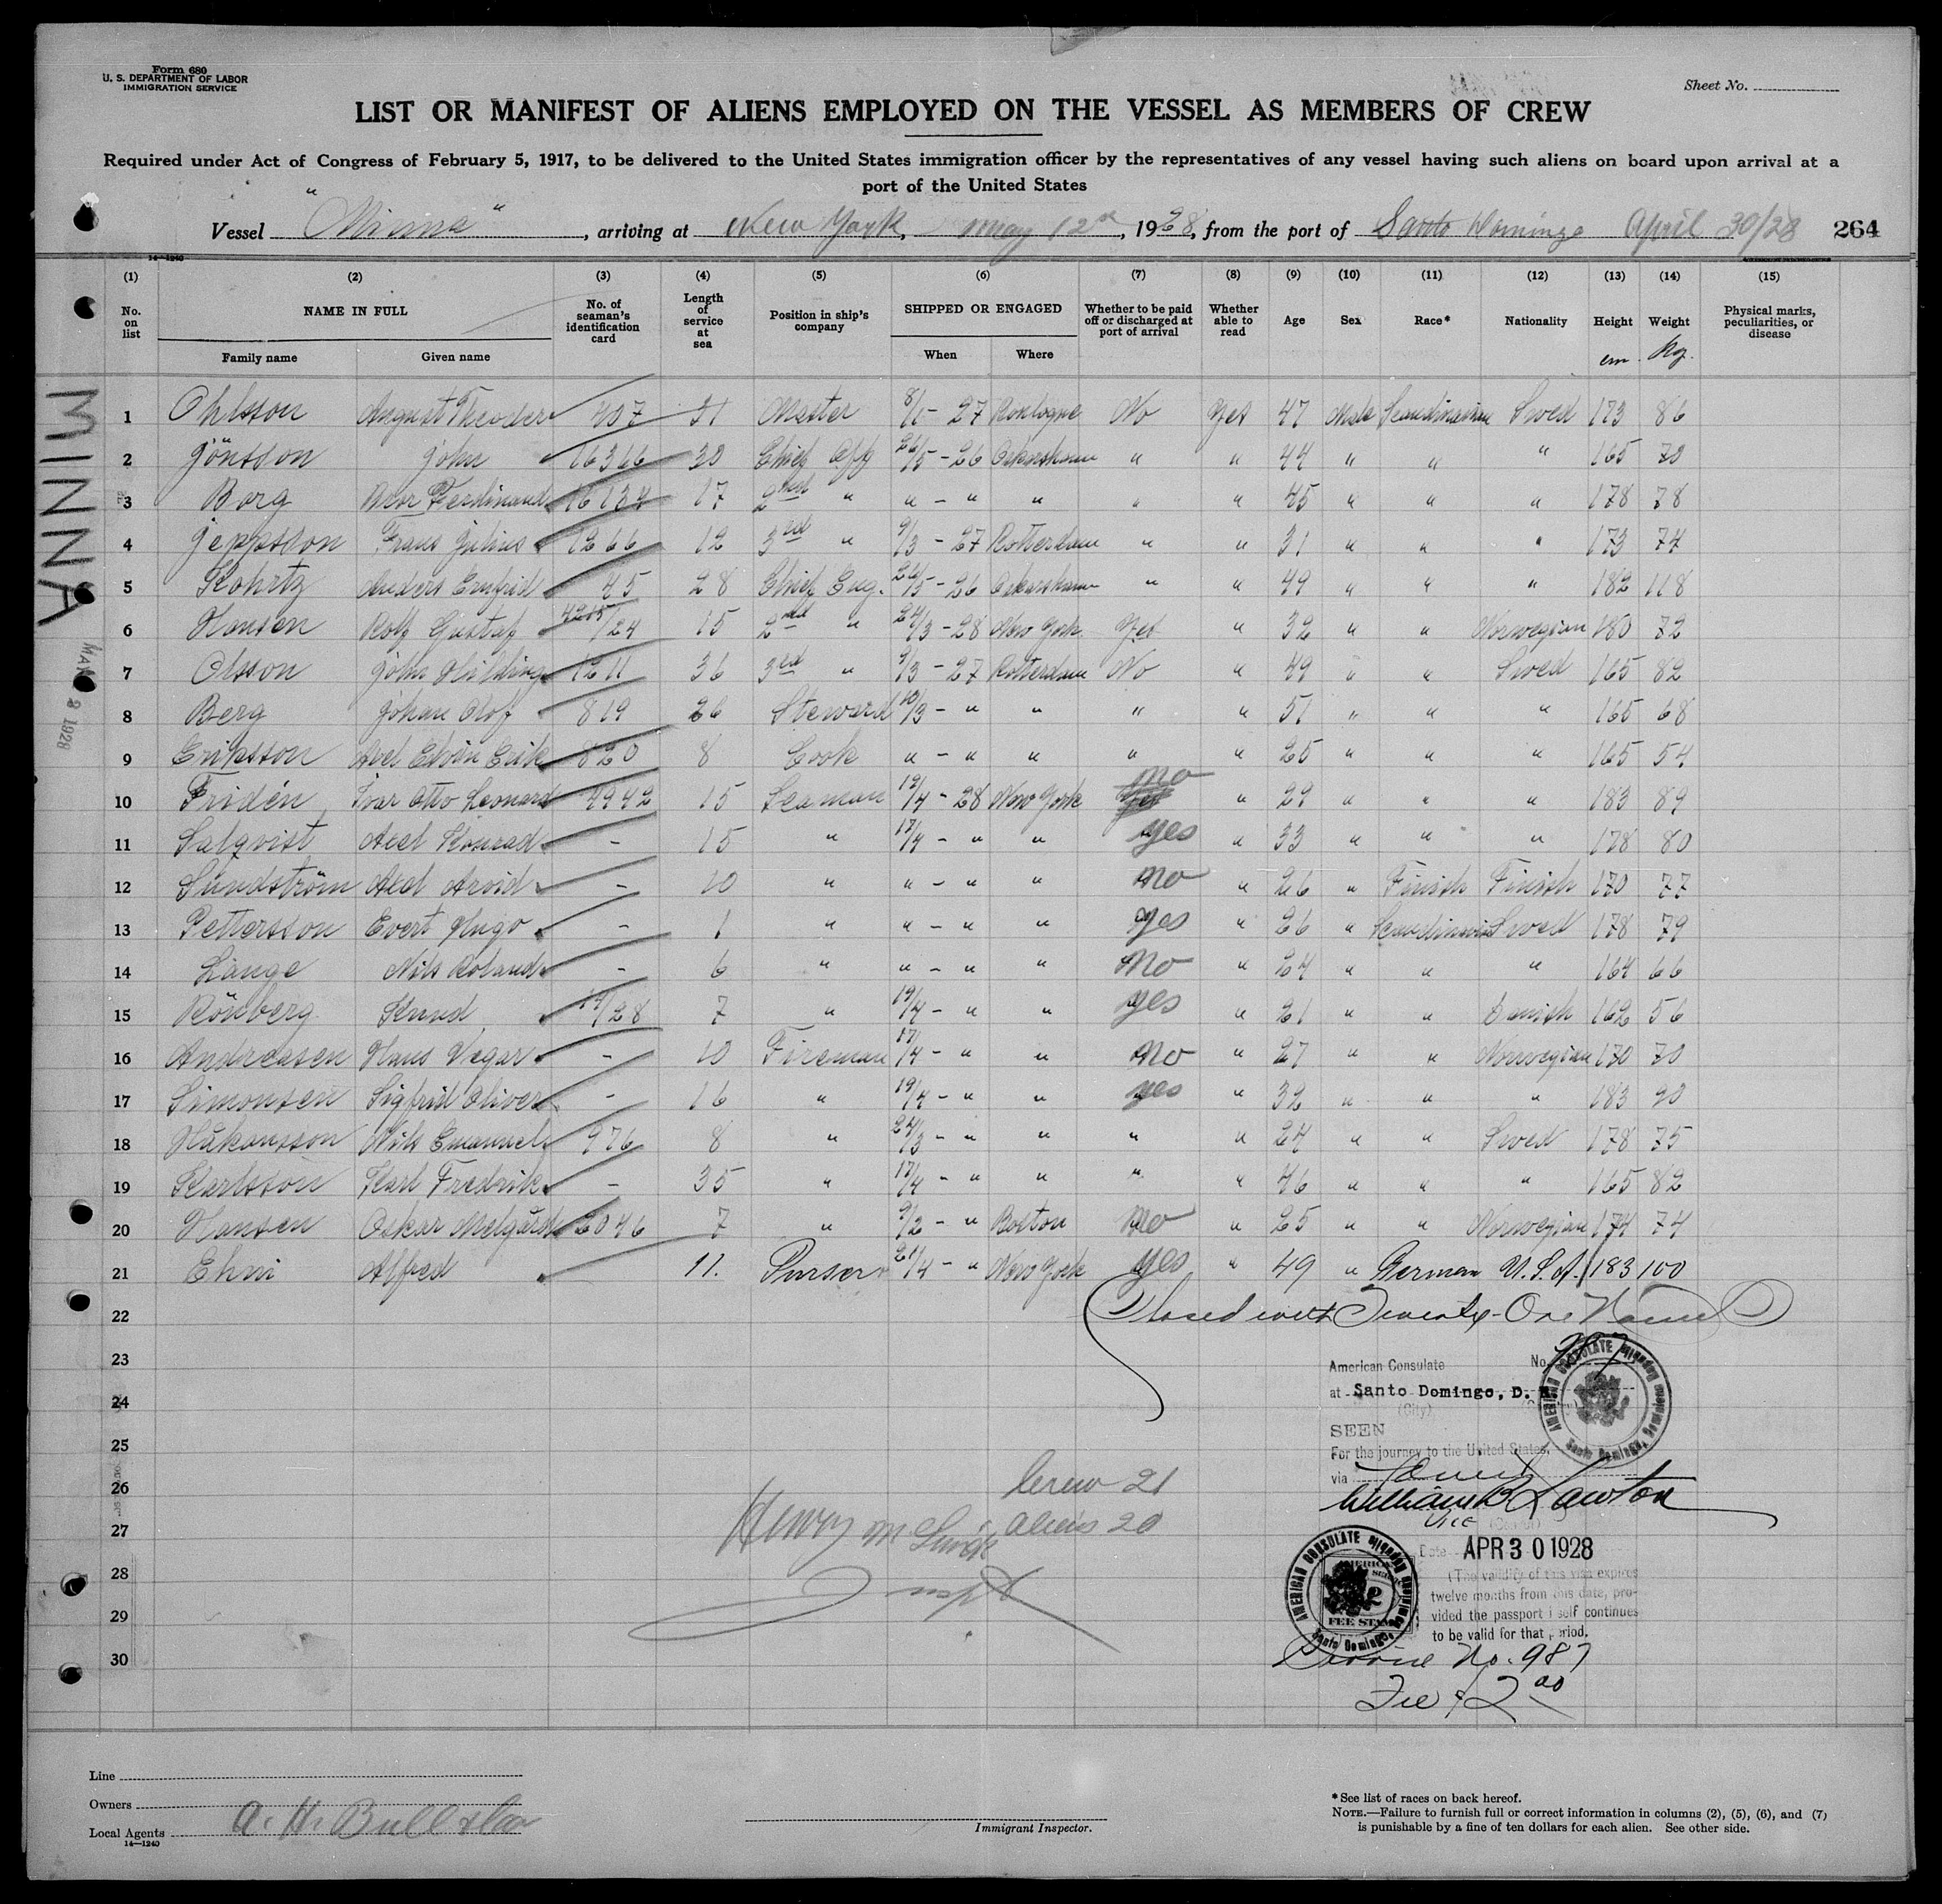 Form 680
U. S. DEPARTMENT OF LABOR
IMMIGRATION SERVICE
Sheet No.
LIST OR MANIFEST OF ALIENS EMPLOYED ON THE VESSEL AS MEMBERS OF CREW
Required under Act of Congress of February 5, 1917, to be delivered to the United States immigration officer by the representatives of any vessel having such aliens on board upon arrival at a
port of the United States
Vessel "Minna", arriving at New York, May 12th, 1928, from the port of Santo Domingo April 30/28 264
14—1240
(1) (2) (3) (4) (5) (6) (7) (8) (9) (10) (11) (12) (13) (14) (15)
No. on list NAME IN FULL Family name Given name No. of seaman's identification card Length of service at sea Position in ship's company SHIPPED OR ENGAGED When Where Whether to be paid off or discharged at port of arrival Whether able to read Age Sex Race* Nationality Height cm Weight Kg. Physical marks, peculiarities, or disease
MINNA
1 Ohlsson August Theodor 407 31 Master 8/5 - 27 Boulogne No Yes 47 Male Scandinavian Swed 173 86
2 Jönsson John 16366 30 Chief Off 26/5 - 26 Oskarshamn " " 44 " " " 165 70
3 Borg Ivar Ferdinand 16134 17 2nd " " - " " " " 45 " " " 178 78
4 Jeppsson Frans Julius 1266 12 3rd " 9/3 - 27 Rotterdam " " 31 " " " 173 74
5 Kohrtz Anders Ernfrid 45 28 Chief Eng. 26/5 - 26 Oskarshamn " " 49 " " " 182 118
6 Hansen Rolf Gustaf 4215/24 15 2nd " 24/3 - 28 New York Yes " 32 " " Norwegian 180 72
7 Olsson John Hilding 1211 36 3rd " 9/3 - 27 Rotterdam No " 49 " " Swed 165 82
8 Berg Johan Olof 819 26 Steward 10/3 - " " " " 51 " " " 165 68
9 Eriksson Axel Edvin Erik 820 8 Cook " - " " " " 25 " " " 165 54
10 Fridén Ivar Otto Leonard 4942 15 Seaman 19/4 - 28 New York No " 29 " " " 183 89
11 Salqvist Axel Konrad - 15 " 17/4 - " " yes " 33 " " " 178 80
12 Sundström Axel Arvid - 10 " " - " " no " 26 " Finish Finish 170 77
13 Pettersson Evert Hugo - 1 " " - " " yes " 26 " Scandinavian Swed 178 79
14 Lange Nils Roland - 6 " " - " " no " 24 " " " 164 66
15 Rönberg Knud 14/28 7 " 19/4 - " " yes " 21 " " Danish 162 56
16 Andreasen Hans Vegar - 10 Fireman 17/4 - " " no " 27 " " Norwegian 170 70
17 Simonsen Sigfrid Oliver - 16 " 19/4 - " " yes " 32 " " " 183 90
18 Håkansson Nils Emanuel 976 8 " 24/3 - " " " " 24 " " Swed 178 75
19 Karlsson Karl Fredrik - 35 " 17/4 - " " " " 46 " " " 165 82
20 Hansen Oskar Melgård 2046 7 " 9/2 - " Boston no " 25 " " Norwegian 174 74
21 Ehni Alfred 11. Purser 21/4 - " New York yes " 49 " German U.S.A. 183 100
22 Closed with Twenty-One Names
23
24
25
26
27
28
29
30
American Consulate No. 987
at Santo Domingo, D. R.
(City)
SEEN
For the journey to the United States.
via
William B Lawton
Vice
Date APR 30 1928
(The validity of this visa expires
twelve months from this date, provided the passport itself continues
to be valid for that period.
AMERICAN CONSULATE
Santo Domingo, Dominican Republic
AMERICAN CONSULATE
Santo Domingo, Dominican Republic
FEE STAMP
Service No. 987
Fee $2.00
Crew 21
Aliens 20
Henry
Insp
Line
Owners
Local Agents A. H. Bull & Co
14—1240
Immigrant Inspector.
*See list of races on back hereof.
NOTE.—Failure to furnish full or correct information in columns (2), (5), (6), and (7)
is punishable by a fine of ten dollars for each alien. See other side.